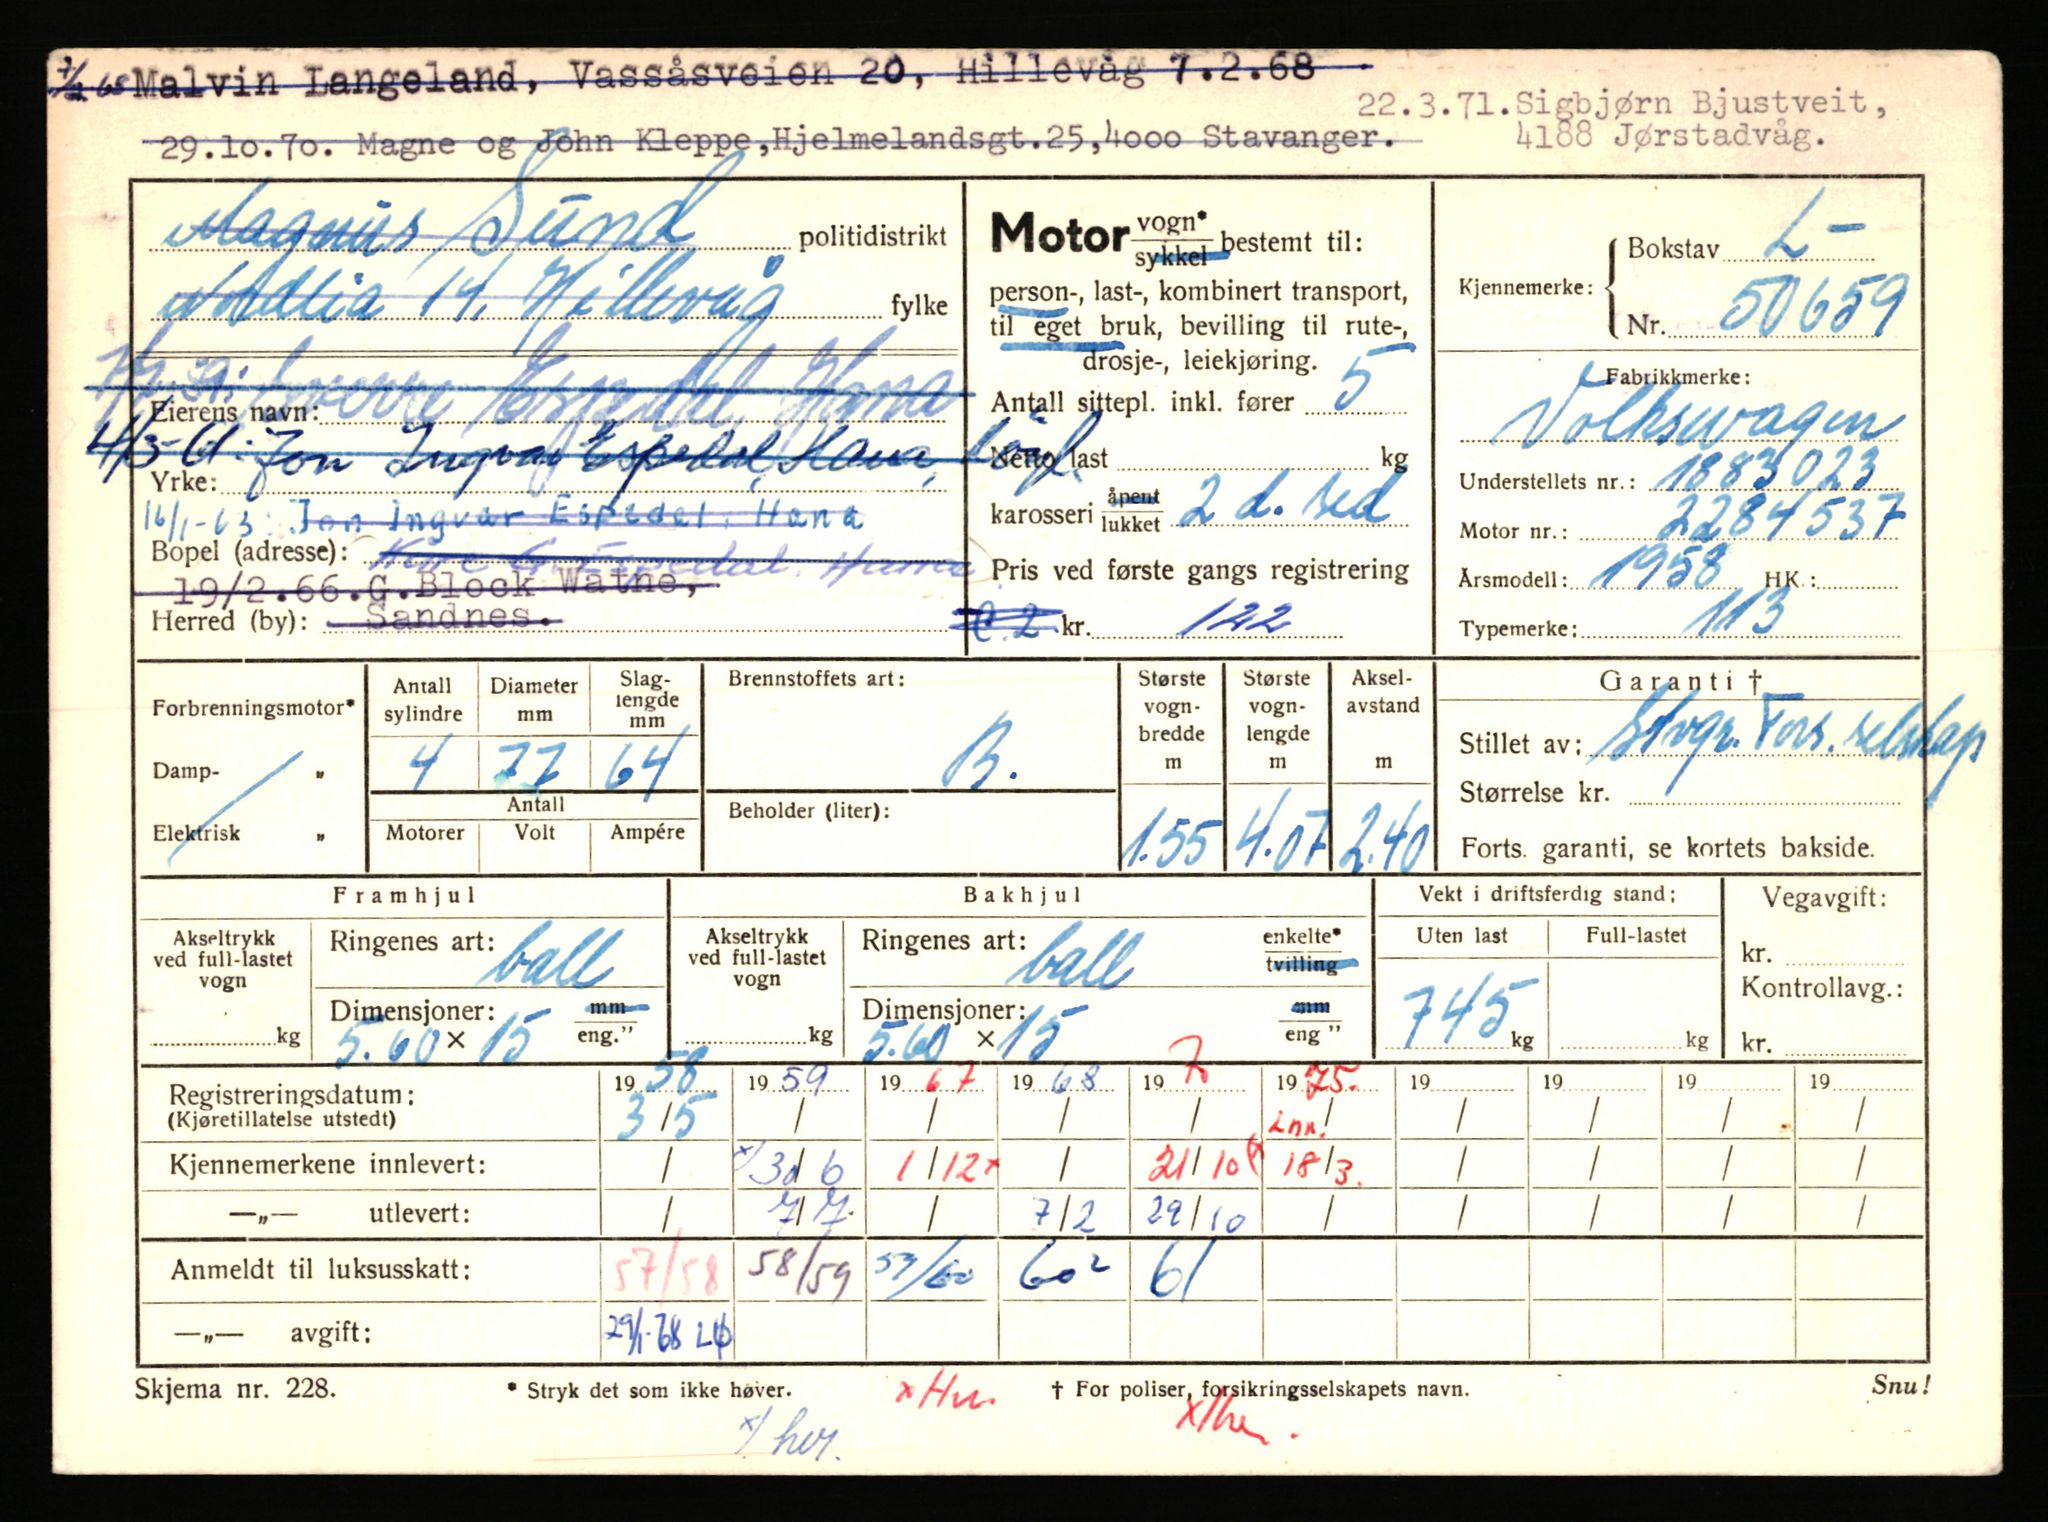 7/2 68 Malvin Langeland, Vassåsveien 20, Hillevåg 7.2.68
22.3.71. Sigbjørn Bjustveit,
29.10.70. Magne og John Kleppe, Hjelmelandsgt.25, 4000 Stavanger.
4188 Jørstadvåg.
Magnus Sund politidistrikt
14, Hillevåg fylke
Espedal, Hana
Eierens navn:
4/3-61: Jon Ingvar Espedal, Hana,
Yrke:
16/1-63: Jon Ingvar Espedal, Hana
Bopel (adresse): Espedal. Hana
19/2.66. G. Block Watne,
Herred (by): Sandnes.
Motor vogn* sykkel bestemt til:
person-, last-, kombinert transport,
til eget bruk, bevilling til rute-,
drosje-, leiekjøring.
Antall sittepl. inkl. fører 5
Netto last kg
karosseri åpent lukket 2 d. sed
Pris ved første gangs registrering
kr. 122
Kjennemerke: Bokstav L-
Nr. 50659
Fabrikkmerke:
Volkswagen
Understellets nr.: 1883023
Motor nr.: 2284537
Årsmodell: 1958 HK.:
Typemerke: 113
Forbrenningsmotor*
Damp- "
Elektrisk "
Antall sylindre 4
Diameter mm 77
Slaglengde mm 64
Antall
Motorer Volt Ampére
Brennstoffets art:
B.
Beholder (liter):
Største vognbredde m 1.55
Største vognlengde m 4.07
Akselavstand m 2.40
Garanti †
Stillet av: Stvgr. Fors. selskap
Størrelse kr.
Forts. garanti, se kortets bakside.
Framhjul
Akseltrykk ved full-lastet vogn kg
Ringenes art: ball
Dimensjoner: mm
5.60 × 15 eng."
Bakhjul
Akseltrykk ved full-lastet vogn kg
Ringenes art: ball enkelte* tvilling
Dimensjoner: mm
5.60 × 15 eng"
Vekt i driftsferdig stand:
Uten last Full-lastet
745 kg kg
Vegavgift:
kr.
Kontrollavg.:
kr.
Registreringsdatum: 1958 1959 1967 1968 197 1975. 19 19 19 19
(Kjøretillatelse utstedt) 3/5 / / / / / / / / /
Lnn.
Kjennemerkene innlevert: / x/ 30/6 1/12 x / 21/10 (x 18/3. / / / /
—„— utlevert: / 7/7. / 7/2 29/10 / / / / /
Anmeldt til luksusskatt: 57/58 58/59 59/60 60² 61
—„— avgift: 29/1-68 LØ
Skjema nr. 228. * Stryk det som ikke høver. † For poliser, forsikringsselskapets navn. Snu!